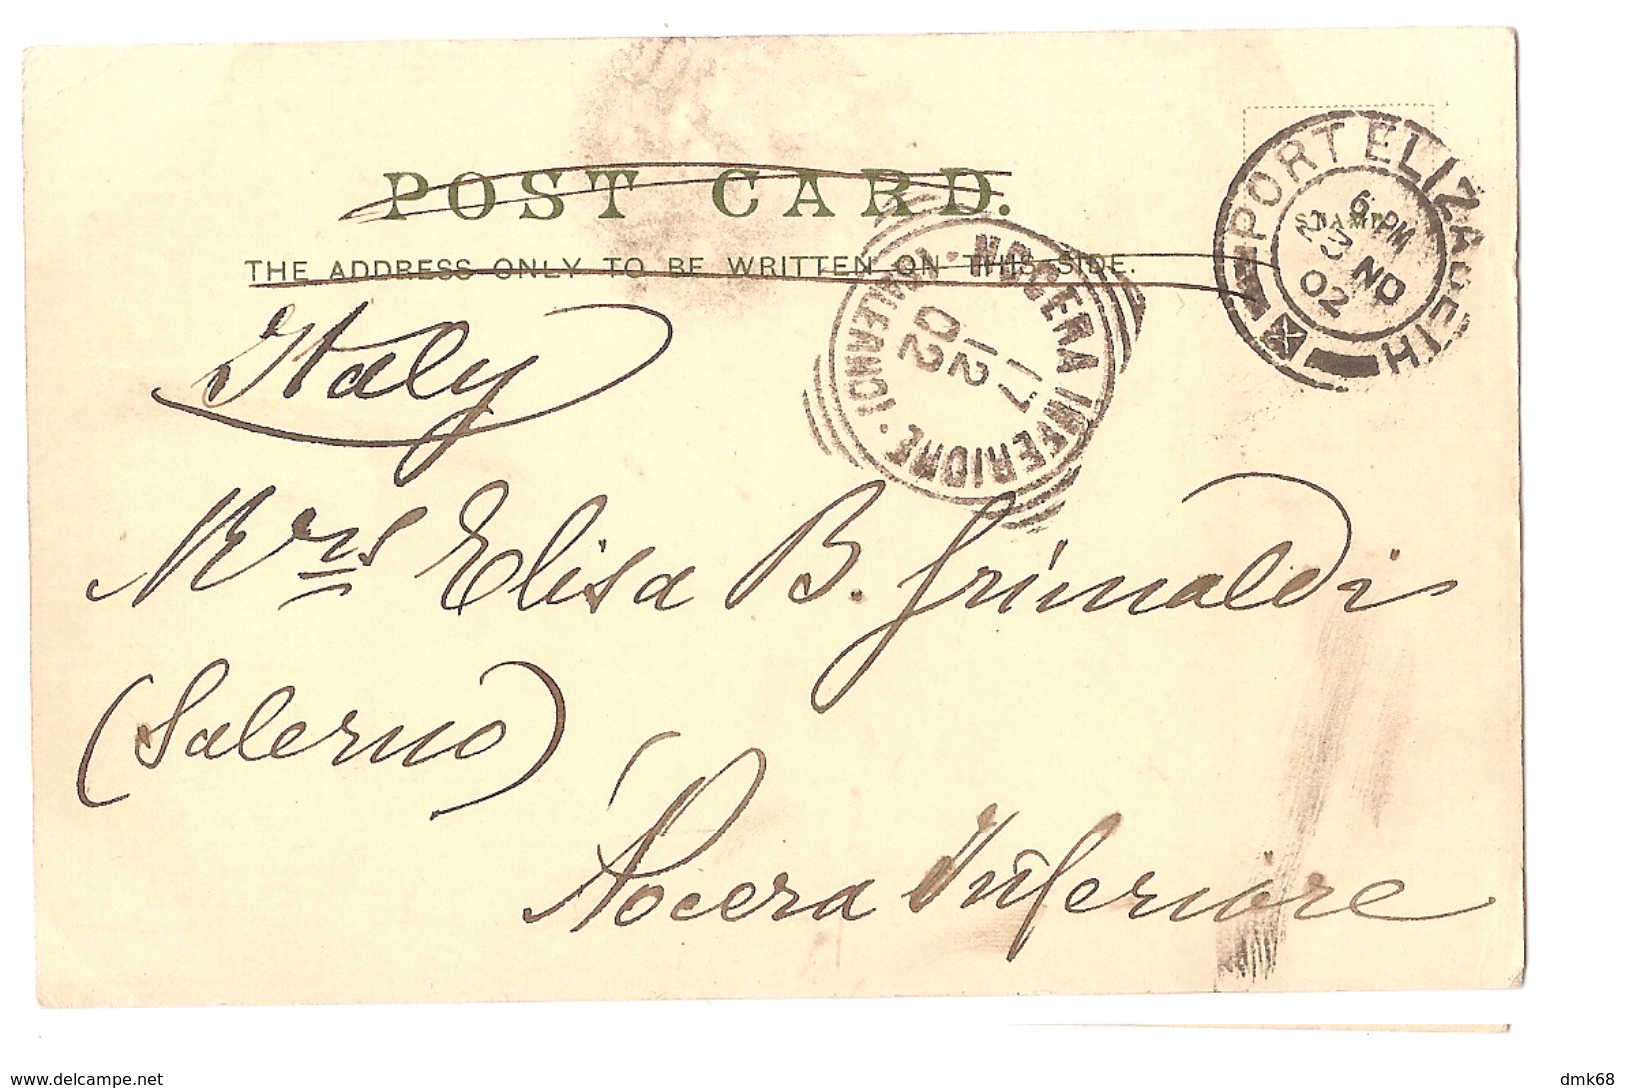 POST CARD.
THE ADDRESS ONLY TO BE WRITTEN ON THIS SIDE.
STAMP
PORT ELIZABETH
6 PM
NO
02
NOCERA INFERIORE · (SALERNO) ·
17
12
02
Italy
Mrs Elisa B. Grimaldi
(Salerno)
Nocera Inferiore
www.delcampe.net
dmk68